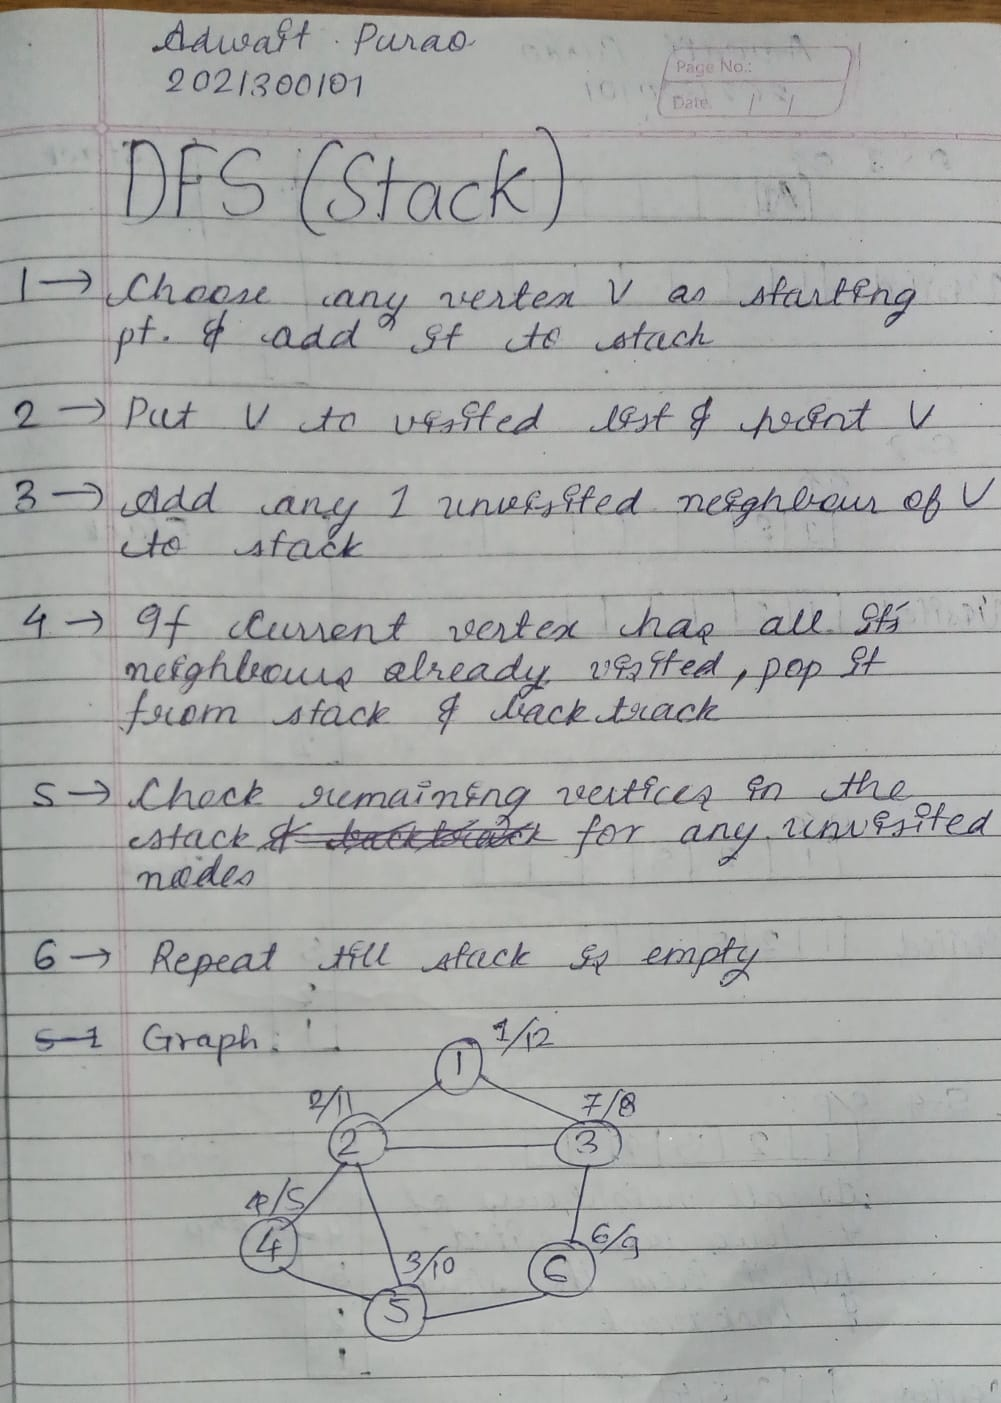 Adwait Purao
2021300101
Page No.:
Date / /
DFS (Stack)
1 → Choose any vertex V as starting
pt. & add it to stack
2 → Put V to visited list & print V
3 → Add any 1 unvisited neighbour of V
to stack
4 → If current vertex has all its
neighbours already visited, pop it
from stack & backtrack
5 → Check remaining vertices in the
stack & backtrack for any unvisited
nodes
6 → Repeat till stack is empty
5-1 Graph:
1/12
1
2/11
7/8
2
3
4/5
4
6/9
3/10
6
5